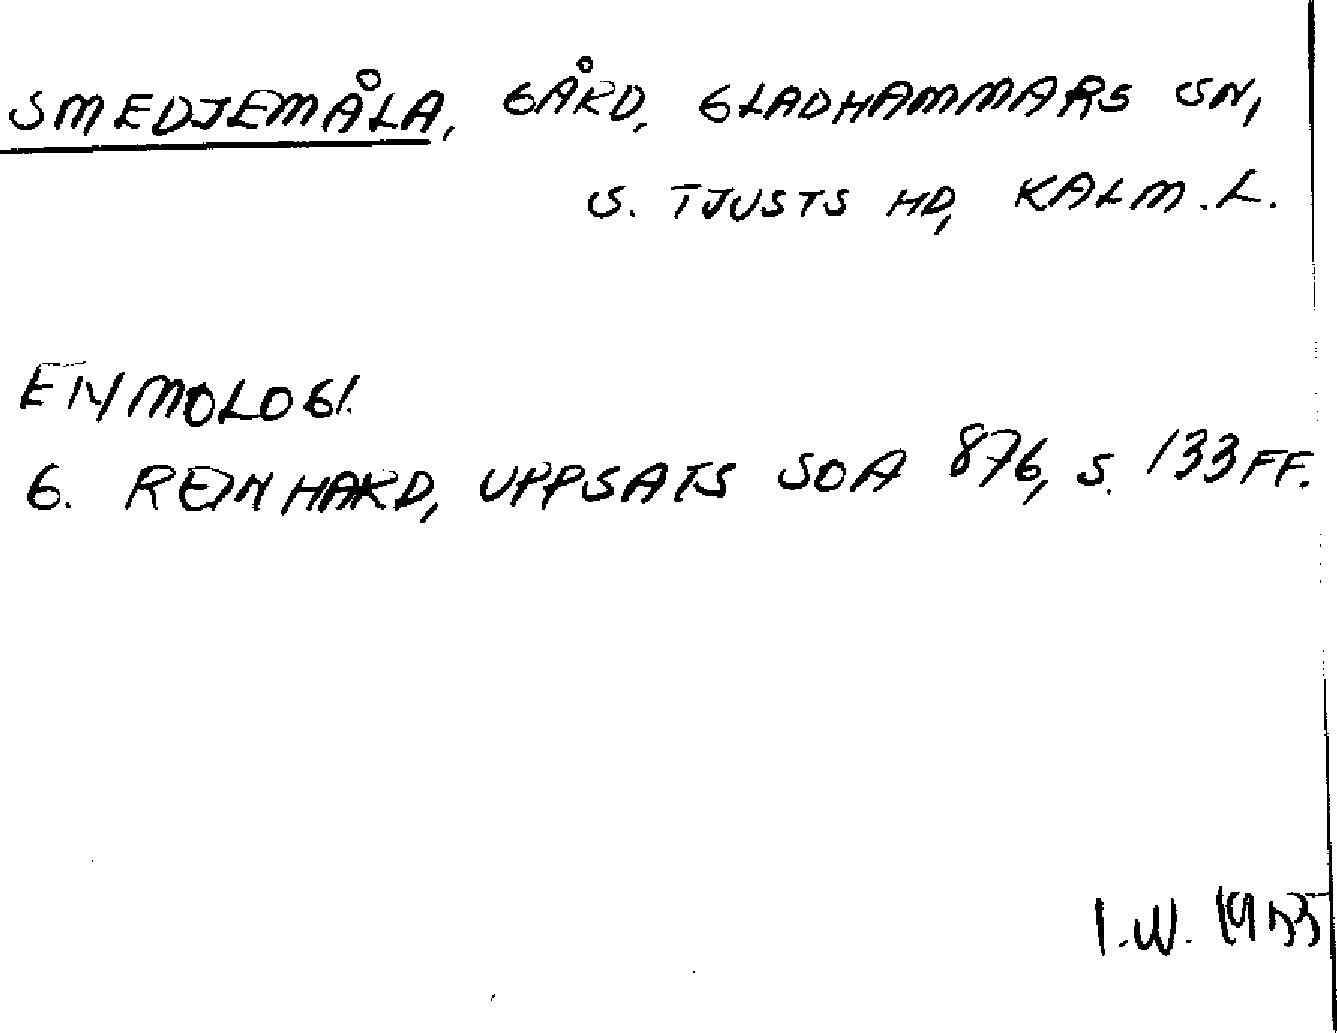 SMEDJEMÅLA, GÅRD, GLADHAMMARS SN,
S. TJUSTS HD, KALM.L.
ETYMOLOGI.
G. REINHARD, UPPSATS SOA 876, S. 133FF.
I.W. 1955